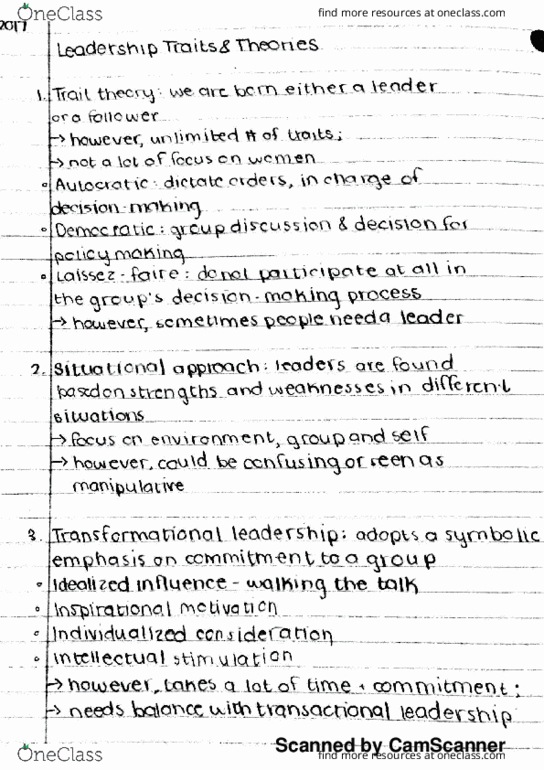 OneClass
find more resources at oneclass.com
2017
Leadership Traits & Theories
1. Trait theory: we are born either a leader
or a follower
→ however, unlimited # of traits;
→ not a lot of focus on women
• Autocratic: dictate orders, in charge of
decision-making
• Democratic: group discussion & decision for
policy making
• Laissez-faire: do not participate at all in
the group's decision-making process
→ however, sometimes people need a leader
2. Situational approach: leaders are found
based on strengths and weaknesses in different
situations
→ focus on environment, group and self
→ however, could be confusing or seen as
manipulative
3. Transformational leadership: adopts a symbolic
emphasis on commitment to a group
• Idealized influence - walking the talk
• Inspirational motivation
• Individualized consideration
• Intellectual stimulation
→ however, takes a lot of time + commitment;
→ needs balance with transactional leadership
Scanned by CamScanner
OneClass
find more resources at oneclass.com